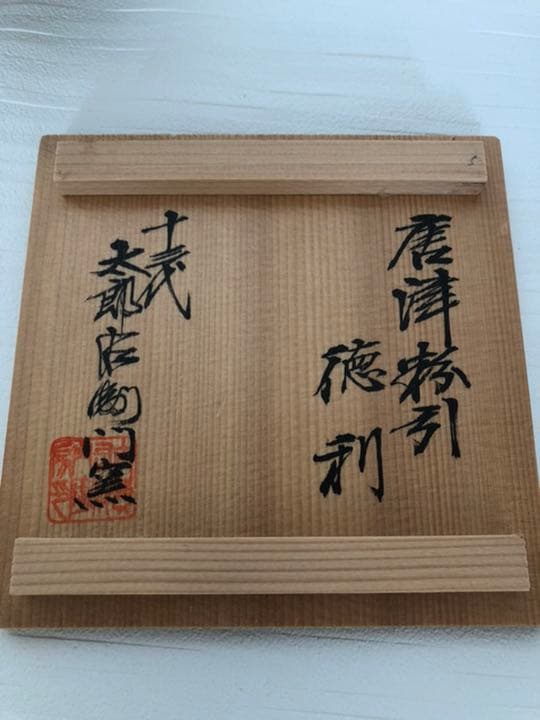 唐津粉引
徳利
十三代
太郎右衛門窯